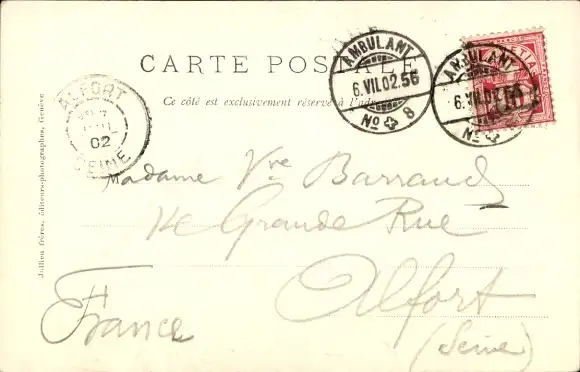 CARTE POSTALE
Ce côté est exclusivement réservé à l'adr
AMBULANT
6.VII.02.56
No 8
AMBULANT
6.VII.0
No
10
ALFORT
02
SEINE
Madame Vve Barraud
14 Grande Rue
Alfort
(Seine)
France
Jullien frères, éditeurs-photographes, Genève